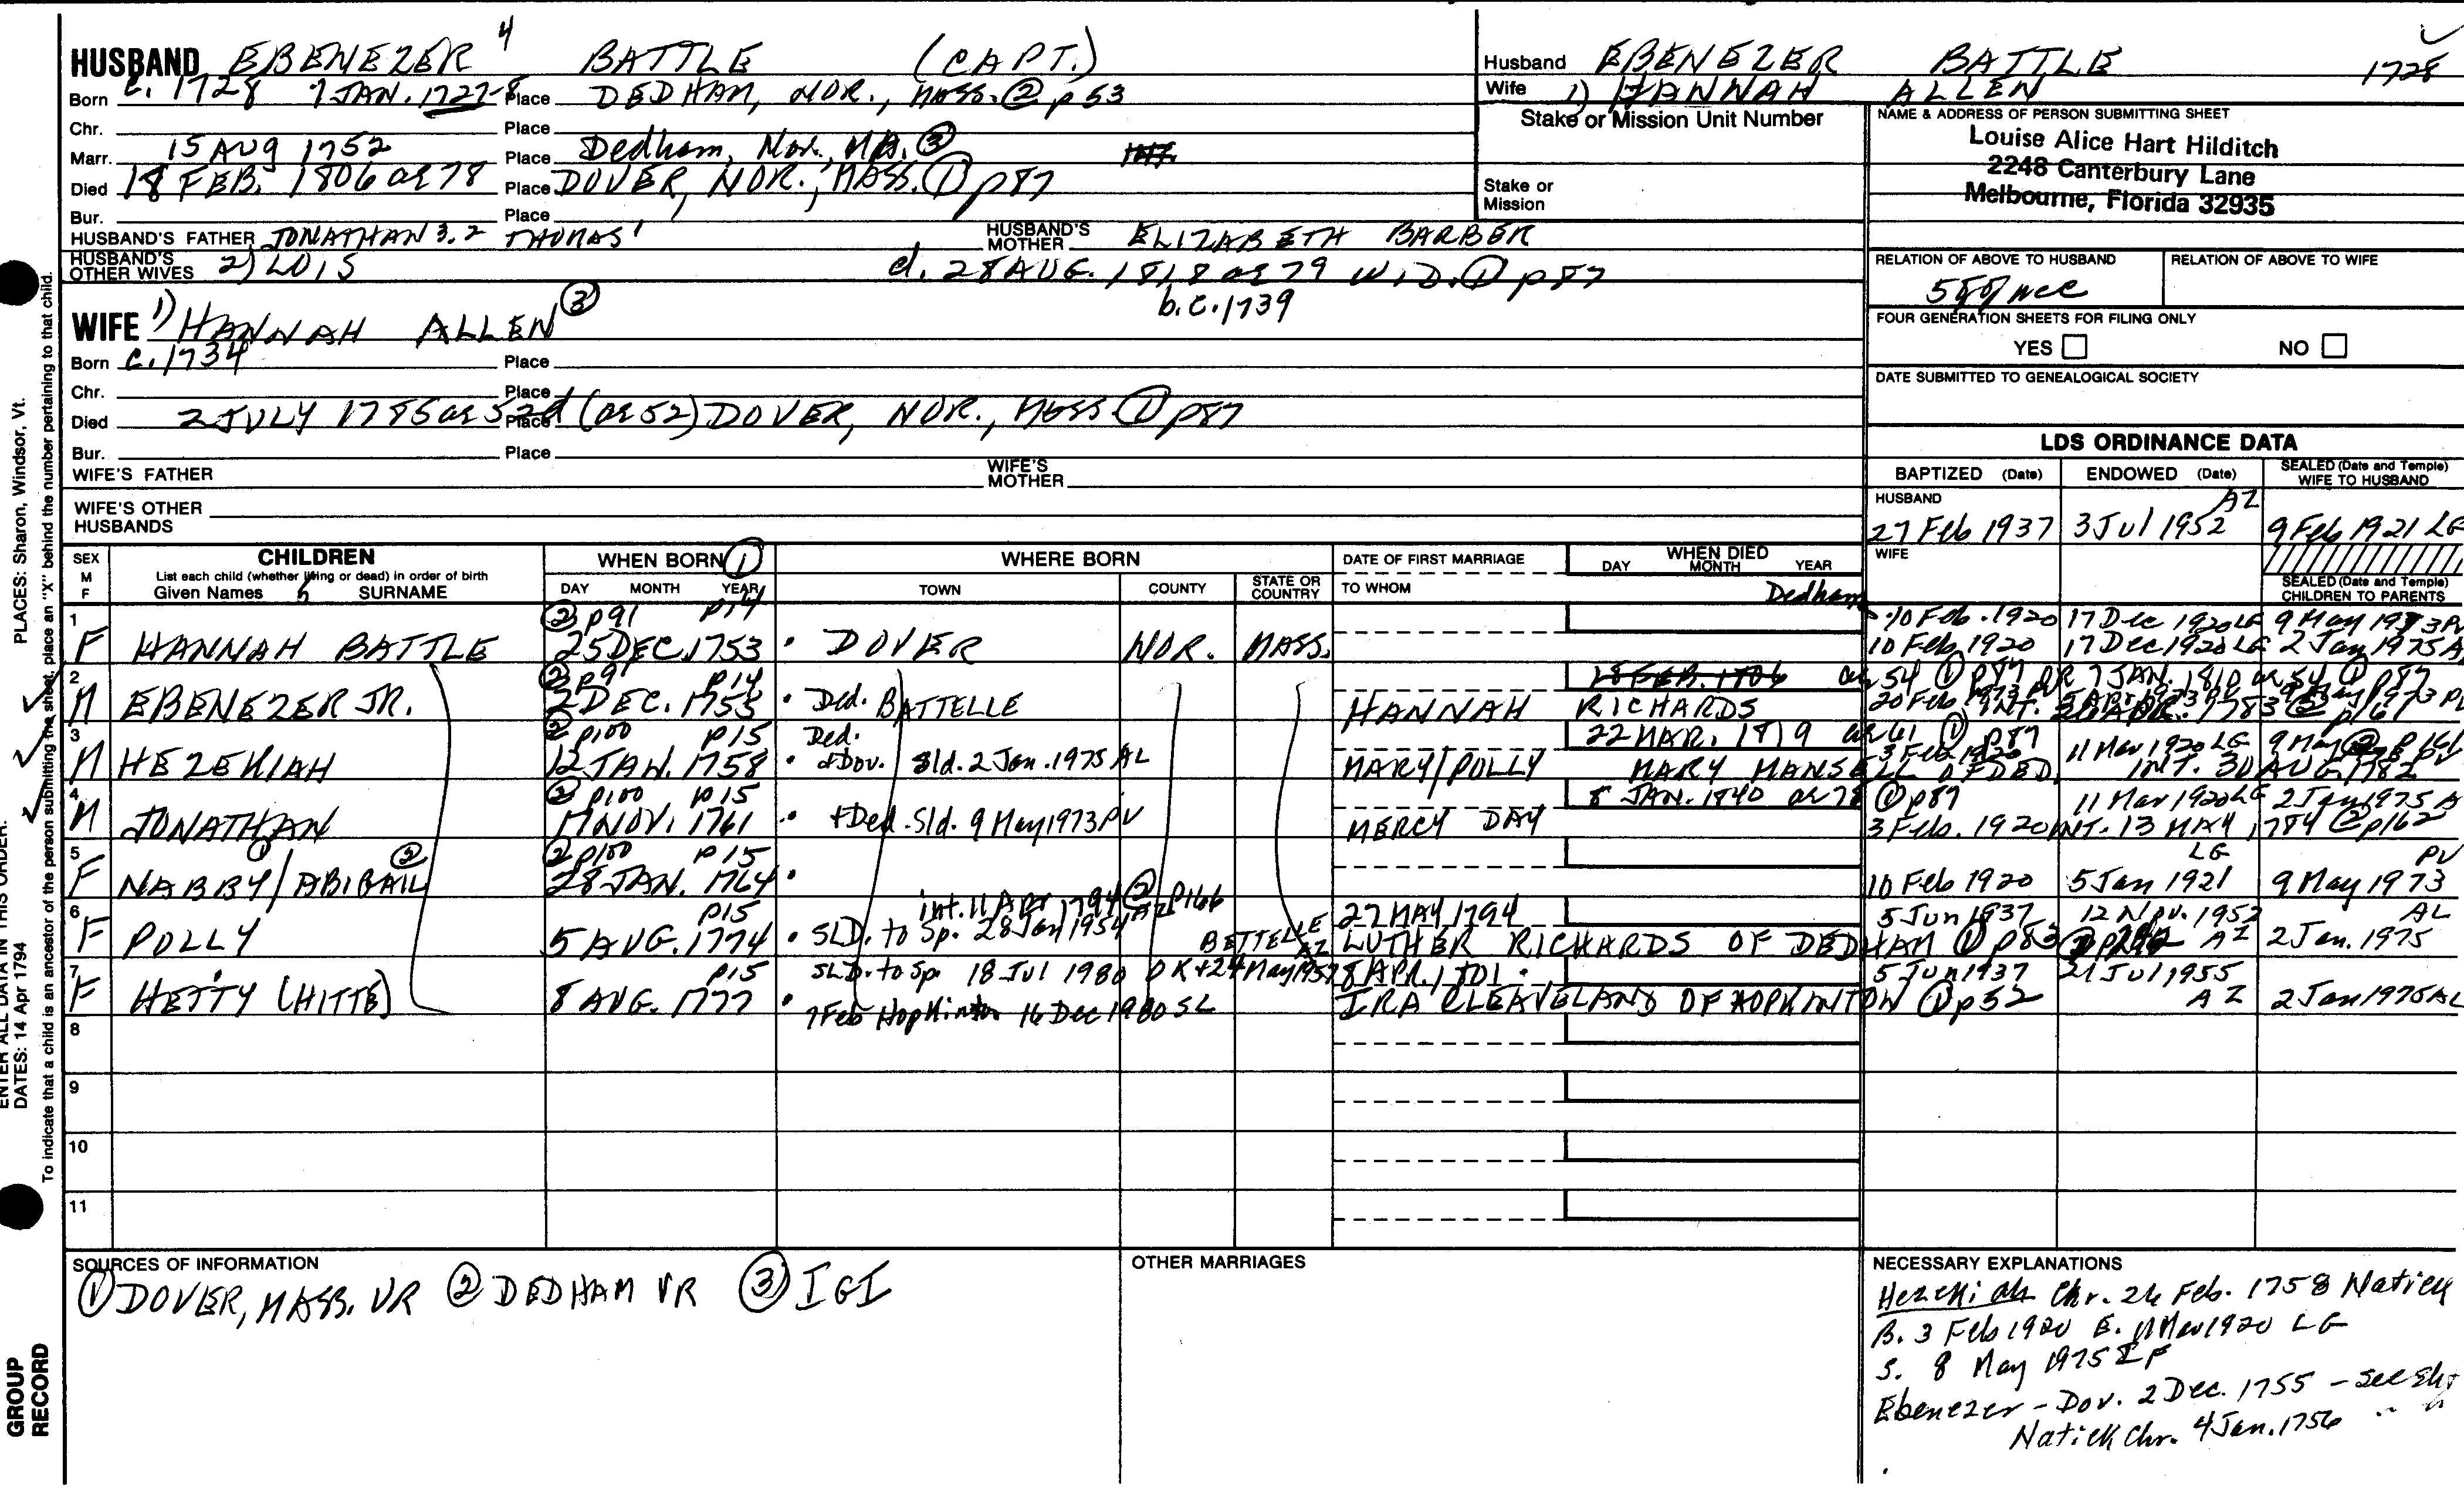 HUSBAND EBENEZER 4 BATTLE (CAPT.)
Born c. 1728 7 JAN. 1727-8 Place DEDHAM, NOR., MASS. ② p53
Chr. Place
Marr. 15 AUG 1752 Place Dedham, Nor., MA. ③
Died 18 FEB. 1806 ae 78 Place DOVER, NOR., MASS. ① p87
Bur. Place
HUSBAND'S FATHER JONATHAN 3. 2 THOMAS 1 HUSBAND'S MOTHER ELIZABETH BARBER
HUSBAND'S OTHER WIVES 2) LOIS d. 28 AUG. 1818 ae 79 WID. ① p87
b. c. 1739
WIFE 1) HANNAH ALLEN ③
Born c. 1734 Place
Chr. Place
Died 2 JULY 1785 ae 52 Place d (ae 52) DOVER, NOR., MASS ① p87
Bur. Place
WIFE'S FATHER WIFE'S MOTHER
WIFE'S OTHER HUSBANDS
Husband EBENEZER BATTLE 1728
Wife 1) HANNAH ALLEN
Stake or Mission Unit Number
Stake or Mission
NAME & ADDRESS OF PERSON SUBMITTING SHEET
Louise Alice Hart Hilditch
2248 Canterbury Lane
Melbourne, Florida 32935
RELATION OF ABOVE TO HUSBAND RELATION OF ABOVE TO WIFE
FOUR GENERATION SHEETS FOR FILING ONLY
YES NO
DATE SUBMITTED TO GENEALOGICAL SOCIETY
LDS ORDINANCE DATA
BAPTIZED (Date) ENDOWED (Date) SEALED (Date and Temple) WIFE TO HUSBAND
HUSBAND AZ
27 Feb 1937 3 Jul 1952 9 Feb 1921 LG
WIFE
SEALED (Date and Temple) CHILDREN TO PARENTS
SEX M F CHILDREN WHEN BORN ① WHERE BORN DATE OF FIRST MARRIAGE WHEN DIED
List each child (whether living or dead) in order of birth
Given Names 5 SURNAME DAY MONTH YEAR TOWN COUNTY STATE OR COUNTRY TO WHOM DAY MONTH YEAR
Dedham
1 ② p91 p14 10 Feb. 1920 17 Dec 1920 LG 9 May 1973 PV
F HANNAH BATTLE 25 DEC. 1753 DOVER NOR. MASS. 10 Feb 1920 17 Dec 1920 LG 2 Jan 1975 A
2 ② p91 p14 18 FEB. 1806 ae 54 ① p87 OR 7 JAN. 1810 ae 54 ① p87
M EBENEZER JR. 2 DEC. 1755 Ded. BATTELLE HANNAH RICHARDS 20 Feb 1973 PV INT. 1783 ② p161
3 ② p100 p15 Ded. 22 MAR. 1819 ae 61 ① p87
M HEZEKIAH 12 JAN. 1758 +Dov. Sld. 2 Jan. 1975 AL MARY/POLLY MARY MANSELL OF DED. INT. 30 AUG 1782
3 Feb 1920 11 Mar 1920 LG 9 May ② p161 PV
4 ② p100 p15 8 JAN. 1840 ae 78 ① p87 11 Mar 1920 LG 2 Jan 1975 A
M JONATHAN 17 NOV. 1761 +Ded. Sld. 9 May 1973 PV MERCY DAY 3 Feb. 1920 INT. 13 MAY 1784 ② p162
5 ① ② ② p100 p15 LG PV
F NABBY/ABIGAIL 28 JAN. 1764 10 Feb 1920 5 Jan 1921 9 May 1973
6 p15 int. 11 Apr 1794 ② p166 27 MAY 1794 5 Jun 1937 12 Nov. 1952 AL
F POLLY 5 AUG. 1774 SLD. to Sp. 28 Jan 1954 AZ BETTELLE LUTHER RICHARDS OF DEDHAM ① p83 AZ 2 Jan. 1975
7 p15 SLD. to Sp. 18 Jul 1980 OK + 24 May 1957 AZ 8 APR. 1801 5 Jun 1937 21 Jul 1955
F HETTY (HITTE) 8 AUG. 1777 7 Feb Hopkinton 16 Dec 1980 SL IRA CLEAVELAND OF HOPKINTON ① p52 AZ 2 Jan 1975 AL
8
9
10
11
SOURCES OF INFORMATION
① DOVER, MASS. VR ② DEDHAM VR ③ IGI
OTHER MARRIAGES
NECESSARY EXPLANATIONS
Hezekiah Chr. 26 Feb. 1758 Natick
B. 3 Feb 1920 E. 11 Mar 1920 LG
S. 8 May 1975 IF
Ebenezer - Dov. 2 Dec. 1755 - see
Natick Chr. 4 Jan. 1756 " "
ENTER ALL DATA IN THIS ORDER:
DATES: 14 Apr 1794 PLACES: Sharon, Windsor, Vt.
To indicate that a child is an ancestor of the person submitting the sheet, place an "X" behind the number pertaining to that child.
GROUP
RECORD